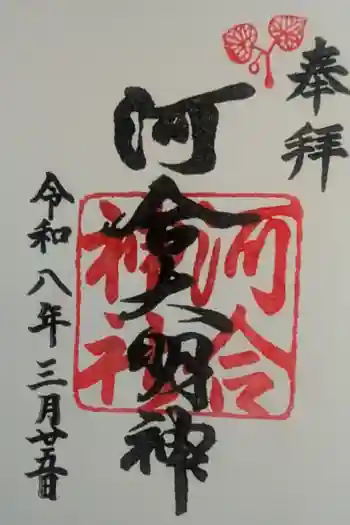 奉拝
河合大明神
河合
神社
令和八年三月廿五日